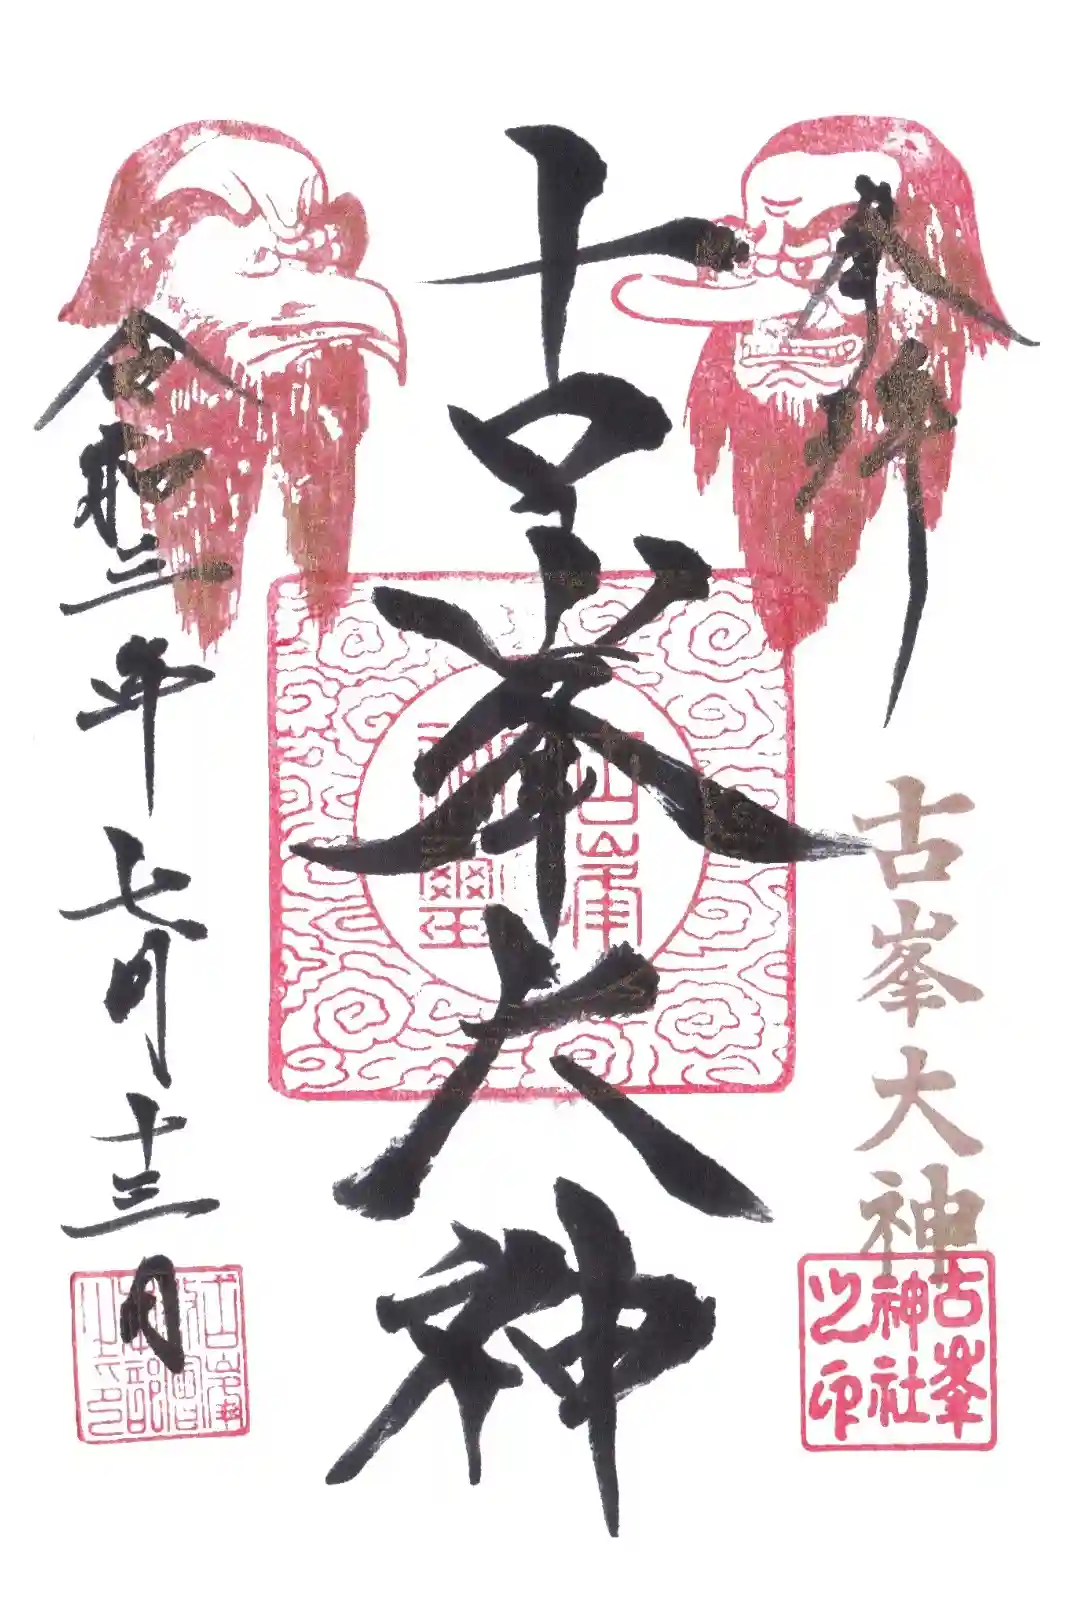 奉拝
古峯大神
古峯
神璽
古峯大神
古峯
神社
之印
令和三年七月十三日